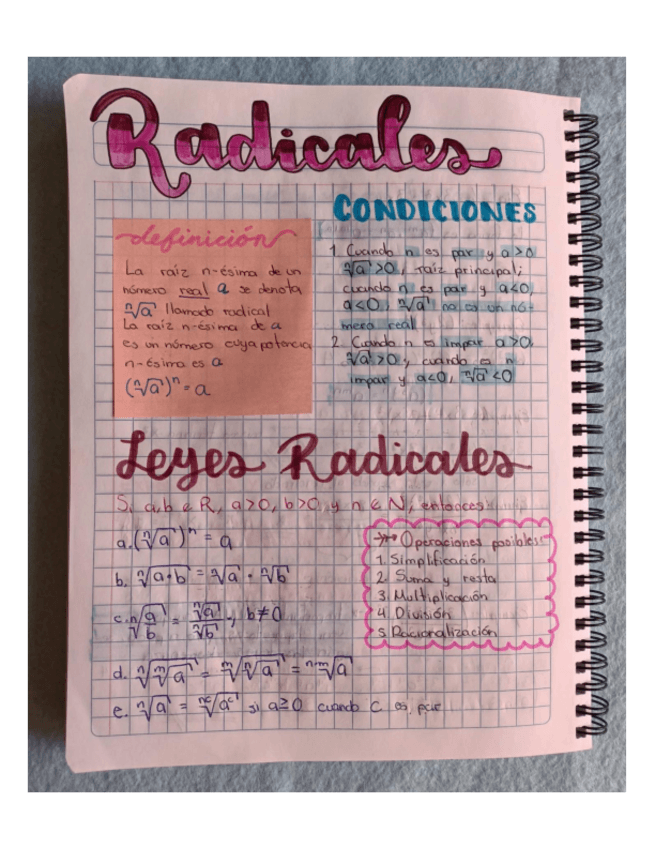 Radicales
definición
La raíz n-ésima de un
número real a se denota
ⁿ√a llamado radical
La raíz n-ésima de a
es un número cuya potencia
n-ésima es a
(ⁿ√a)ⁿ = a
CONDICIONES
1. Cuando n es par y a>0
ⁿ√a>0, raíz principal;
cuando n es par y a<0,
a<0, ⁿ√a no es un nú-
mero real
2. Cuando n es impar a>0,
ⁿ√a>0 y cuando es n
impar y a<0, ⁿ√a<0
Leyes Radicales
Si a,b ∈ R, a>0, b>0 y n ∈ N, entonces:
a. (ⁿ√a)ⁿ = a
b. ⁿ√a·b = ⁿ√a · ⁿ√b
c. ⁿ√a/b = ⁿ√a/ⁿ√b, b≠0
d. ⁿ√ᵐ√a = ᵐ√ⁿ√a = ⁿ·ᵐ√a
e. ⁿ√a = ⁿᶜ√aᶜ si a≥0 cuando c es par
Operaciones posibles:
1. Simplificación
2. Suma y resta
3. Multiplicación
4. División
5. Racionalización